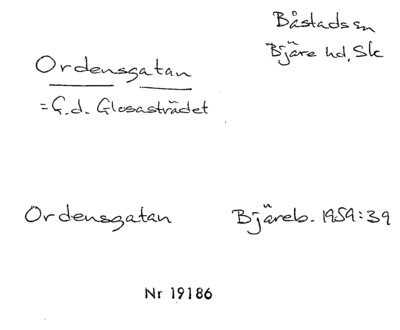 Ordensgatan
= F.d. Glosasträdet
Båstads sn
Bjäre hd, Sk
Ordensgatan Bjäreb. 1959:39
Nr 19186